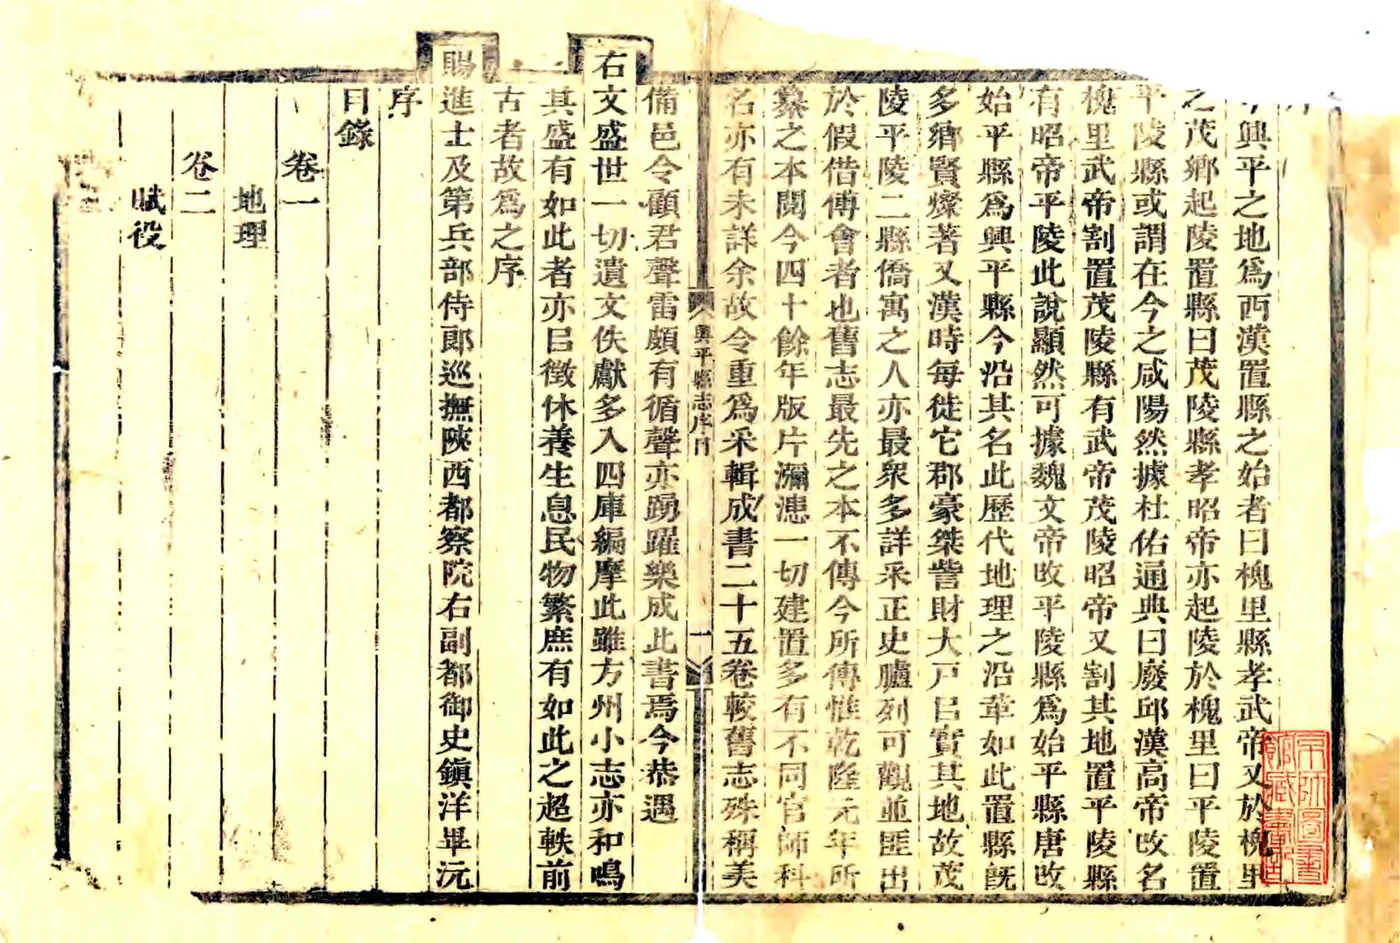 興平之地爲西漢置縣之始者曰槐里縣孝武帝又於槐里
之茂鄉起陵置縣曰茂陵縣孝昭帝亦起陵於槐里曰平陵置
平陵縣或謂在今之咸陽然據杜佑通典曰廢邱漢高帝攺名
槐里武帝割置茂陵縣有武帝茂陵昭帝又割其地置平陵縣
有昭帝平陵此說顯然可據魏文帝攺平陵縣爲始平縣唐攺
始平縣爲興平縣今沿其名此歷代地理之沿革如此置縣旣
多鄉賢燦著又漢時每徙它郡豪桀訾財大戸㠯實其地故茂
陵平陵二縣僑寓之人亦最衆多詳采正史臚列可觀並匪出
於假借傅會者也舊志最先之本不傳今所傳惟乾隆元年所
纂之本閱今四十餘年版片瀰漶一切建置多有不同官師科
名亦有未詳余故令重爲采輯成書二十五卷較舊志殊稱美
興平縣志序目
一
備邑令顧君聲雷頗有循聲亦踴躍樂成此書焉今恭遇
右文盛世一切遺文佚獻多入四庫編摩此雖方州小志亦和鳴
其盛有如此者亦㠯徵休養生息民物繁庶有如此之超軼前
古者故爲之序
賜進士及第兵部侍郎巡撫陝西都察院右副都御史鎮洋畢沅
序
目錄
卷一
地理
卷二
賦役